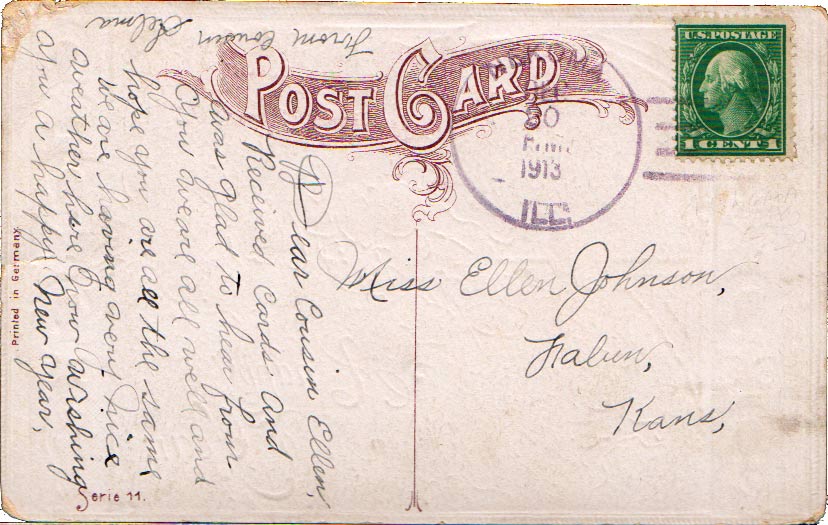 POST CARD
U.S. POSTAGE
1 CENT 1
DEC
30
A.M.
1913
ILL.
Dear Cousin Ellen,
Received Cards and
was glad to hear from
You we are all well and
hope you are all the same
we are having very nice
weather here now Wishing
you a happy New Year,
From Cousin Selma
Miss Ellen Johnson,
Falun,
Kans,
Printed in Germany
Serie 11.